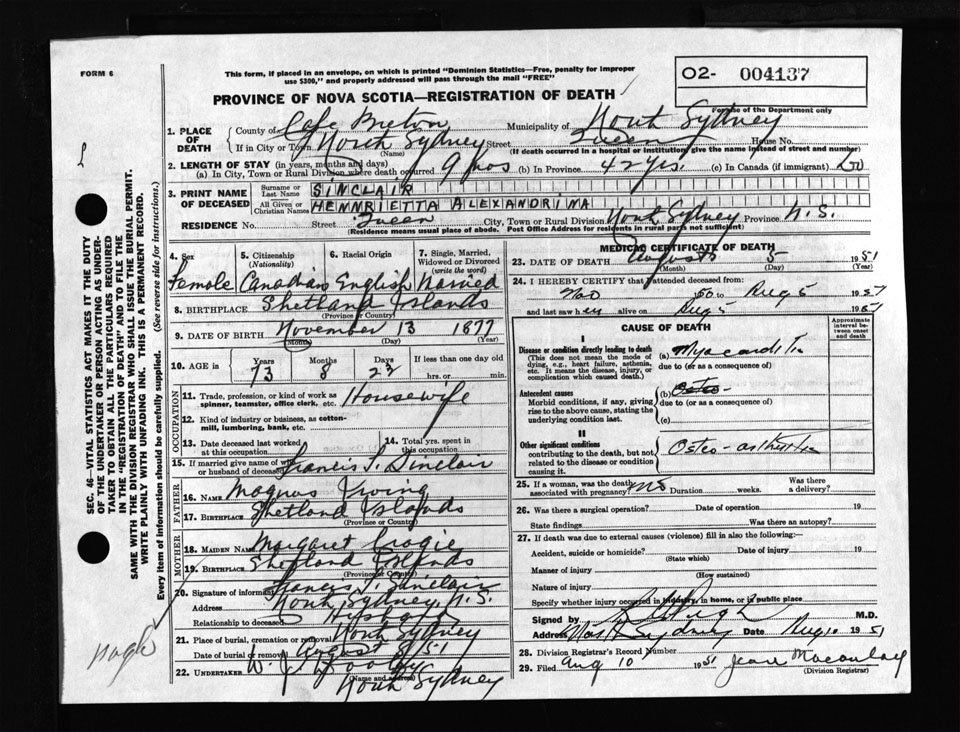 FORM 6
This form, if placed in an envelope, on which is printed "Dominion Statistics—Free, penalty for improper
use $300," and properly addressed will pass through the mail "FREE"
02- 004137
For use of the Department only
PROVINCE OF NOVA SCOTIA—REGISTRATION OF DEATH
1. PLACE OF DEATH
County of Cape Breton Municipality of North Sydney
If in City or Town North Sydney Street Queen House No.
(Name) (If death occurred in a hospital or institution, give the name instead of street and number)
2. LENGTH OF STAY (in years, months and days)
(a) In City, Town or Rural Division where death occurred 9 mos (b) In Province 42 yrs. (c) In Canada (if immigrant)
3. PRINT NAME OF DECEASED
Surname or Last Name SINCLAIR
All Given or Christian Names HENNRIETTA ALEXANDRINA
RESIDENCE No. Street Queen City, Town or Rural Division North Sydney Province N.S.
(Residence means usual place of abode. Post Office Address for residents in rural parts not sufficient)
4. Sex 5. Citizenship (Nationality) 6. Racial Origin 7. Single, Married, Widowed or Divorced (write the word)
Female Canadian English Married
8. BIRTHPLACE Shetland Islands
(Province or Country)
9. DATE OF BIRTH November 13 1877
(Month) (Day) (Year)
10. AGE in Years Months Days If less than one day old
73 8 23 hrs. or min.
OCCUPATION
11. Trade, profession, or kind of work as spinner, teamster, office clerk, etc. Housewife
12. Kind of industry or business, as cotton-mill, lumbering, bank, etc.
13. Date deceased last worked at this occupation
14. Total yrs. spent in this occupation
15. If married give name of wife or husband of deceased Francis S. Sinclair
FATHER
16. NAME Magnus Irving
17. BIRTHPLACE Shetland Islands
(Province or Country)
MOTHER
18. MAIDEN NAME Margaret
19. BIRTHPLACE Shetland Islands
(Province or Country)
20. Signature of informant Francis Sinclair
Address North Sydney, N.S.
Relationship to deceased Husband
21. Place of burial, cremation or removal North Sydney
Date of burial or removal August 8/51
22. UNDERTAKER W. J. Dooley
(Name and address)
North Sydney
MEDICAL CERTIFICATE OF DEATH
23. DATE OF DEATH August 5 1951
(Month) (Day)
24. I HEREBY CERTIFY that I attended deceased from:
Nov 50 to Aug 5 1951
and last saw her alive on Aug 5 1951
CAUSE OF DEATH
Approximate interval between onset and death
I
Disease or condition directly leading to death
(This does not mean the mode of dying, e.g., heart failure, asthenia, etc. It means the disease, injury, or complication which caused death.)
(a) Myocarditis
due to (or as a consequence of)
Antecedent causes
Morbid conditions, if any, giving rise to the above cause, stating the underlying condition last.
(b) Osteo-
due to (or as a consequence of)
(c)
II
Other significant conditions
contributing to the death, but not related to the disease or condition causing it.
Osteo-arthritis
25. If a woman, was the death associated with pregnancy? No Duration weeks. Was there a delivery?
26. Was there a surgical operation? Date of operation 19
State findings Was there an autopsy?
27. If death was due to external causes (violence) fill in also the following:—
Accident, suicide or homicide? Date of injury 19
(State which)
Manner of injury
(How sustained)
Nature of injury
Specify whether injury occurred in industry, in home, or in public place
Signed by M.D.
Address North Sydney Date Aug 10 1951
28. Division Registrar's Record Number
29. Filed Aug 10 1951 Jean Macaulay
(Division Registrar)
SEC. 46—VITAL STATISTICS ACT MAKES IT THE DUTY
OF THE UNDERTAKER OR PERSON ACTING AS UNDER-
TAKER TO OBTAIN ALL THE PARTICULARS REQUIRED
IN THE "REGISTRATION OF DEATH" AND TO FILE THE
SAME WITH THE DIVISION REGISTRAR WHO SHALL ISSUE THE BURIAL PERMIT.
WRITE PLAINLY WITH UNFADING INK. THIS IS A PERMANENT RECORD.
Every item of information should be carefully supplied. (See reverse side for instructions.)